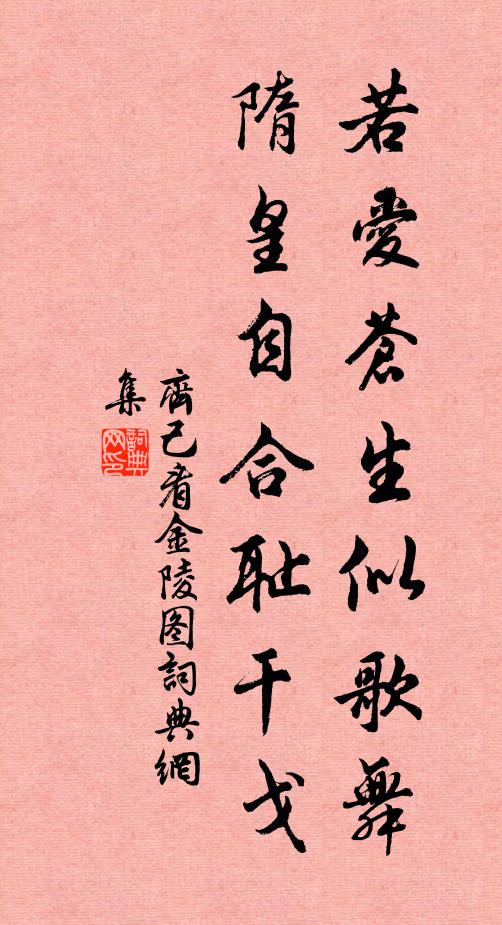 若愛蒼生似歌舞
隋皇自合耻干戈
齊己看金陵图詞典網
集
詞典
网印